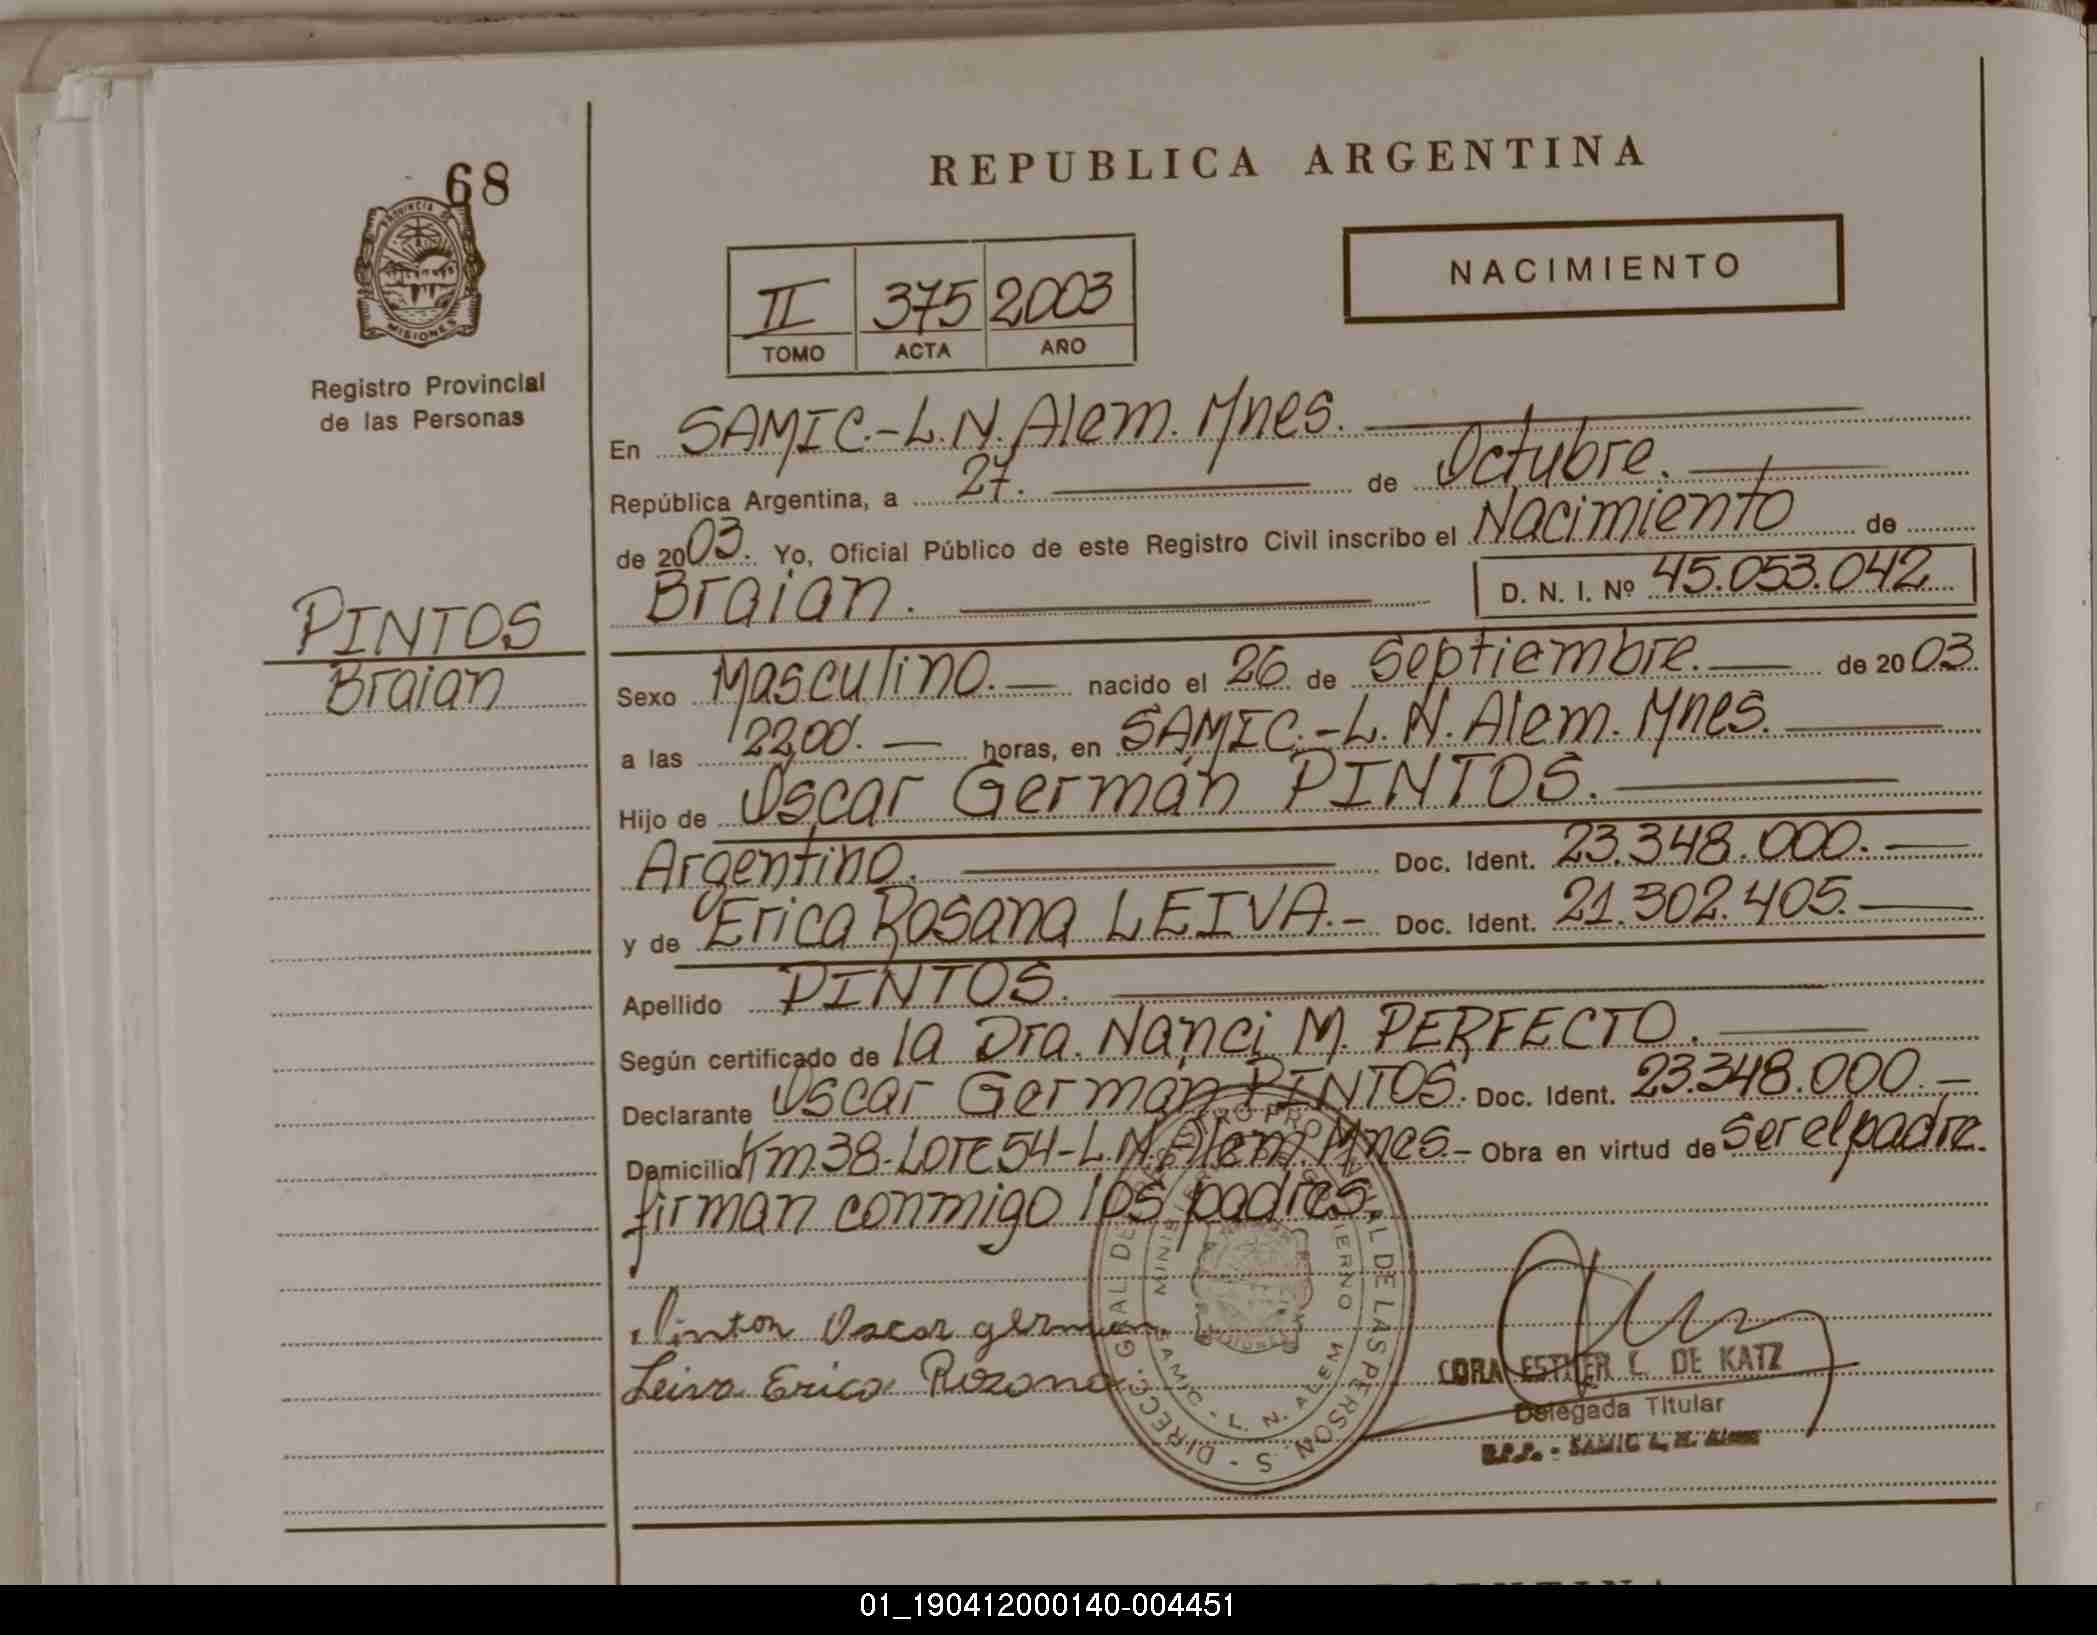 68
PROVINCIA DE
MISIONES
Registro Provincial
de las Personas
REPUBLICA ARGENTINA
NACIMIENTO
II 375 2003
TOMO ACTA AÑO
En SAMIC.-L.N.Alem.Mnes.
República Argentina, a 27. de Octubre.
de 2003. Yo, Oficial Público de este Registro Civil inscribo el Nacimiento de
Braian. D. N. I. Nº 45.053.042
PINTOS
Braian
Sexo Masculino.- nacido el 26 de Septiembre. de 2003
a las 22,00. horas, en SAMIC.-L.N.Alem.Mnes.
Hijo de Oscar Germán PINTOS.
Argentino. Doc. Ident. 23.348.000.-
y de Erica Rosana LEIVA.- Doc. Ident. 21.302.405.
Apellido PINTOS.
Según certificado de la Dra. Nanci M. PERFECTO.
Declarante Oscar Germán PINTOS. Doc. Ident. 23.348.000.-
Domicilio Km.38-Lote 54-L.N.Alem.Mnes.- Obra en virtud de ser el padre.
firman conmigo los padres.
Oscar german
Leiva Erica Rozana
DIRECC. GRAL DE LAS PERSONAS
SAMIC - L. N. ALEM
CORA ESTHER C. DE KATZ
Delegada Titular
R.P.P. - SAMIC L. N. Alem
01_190412000140-004451